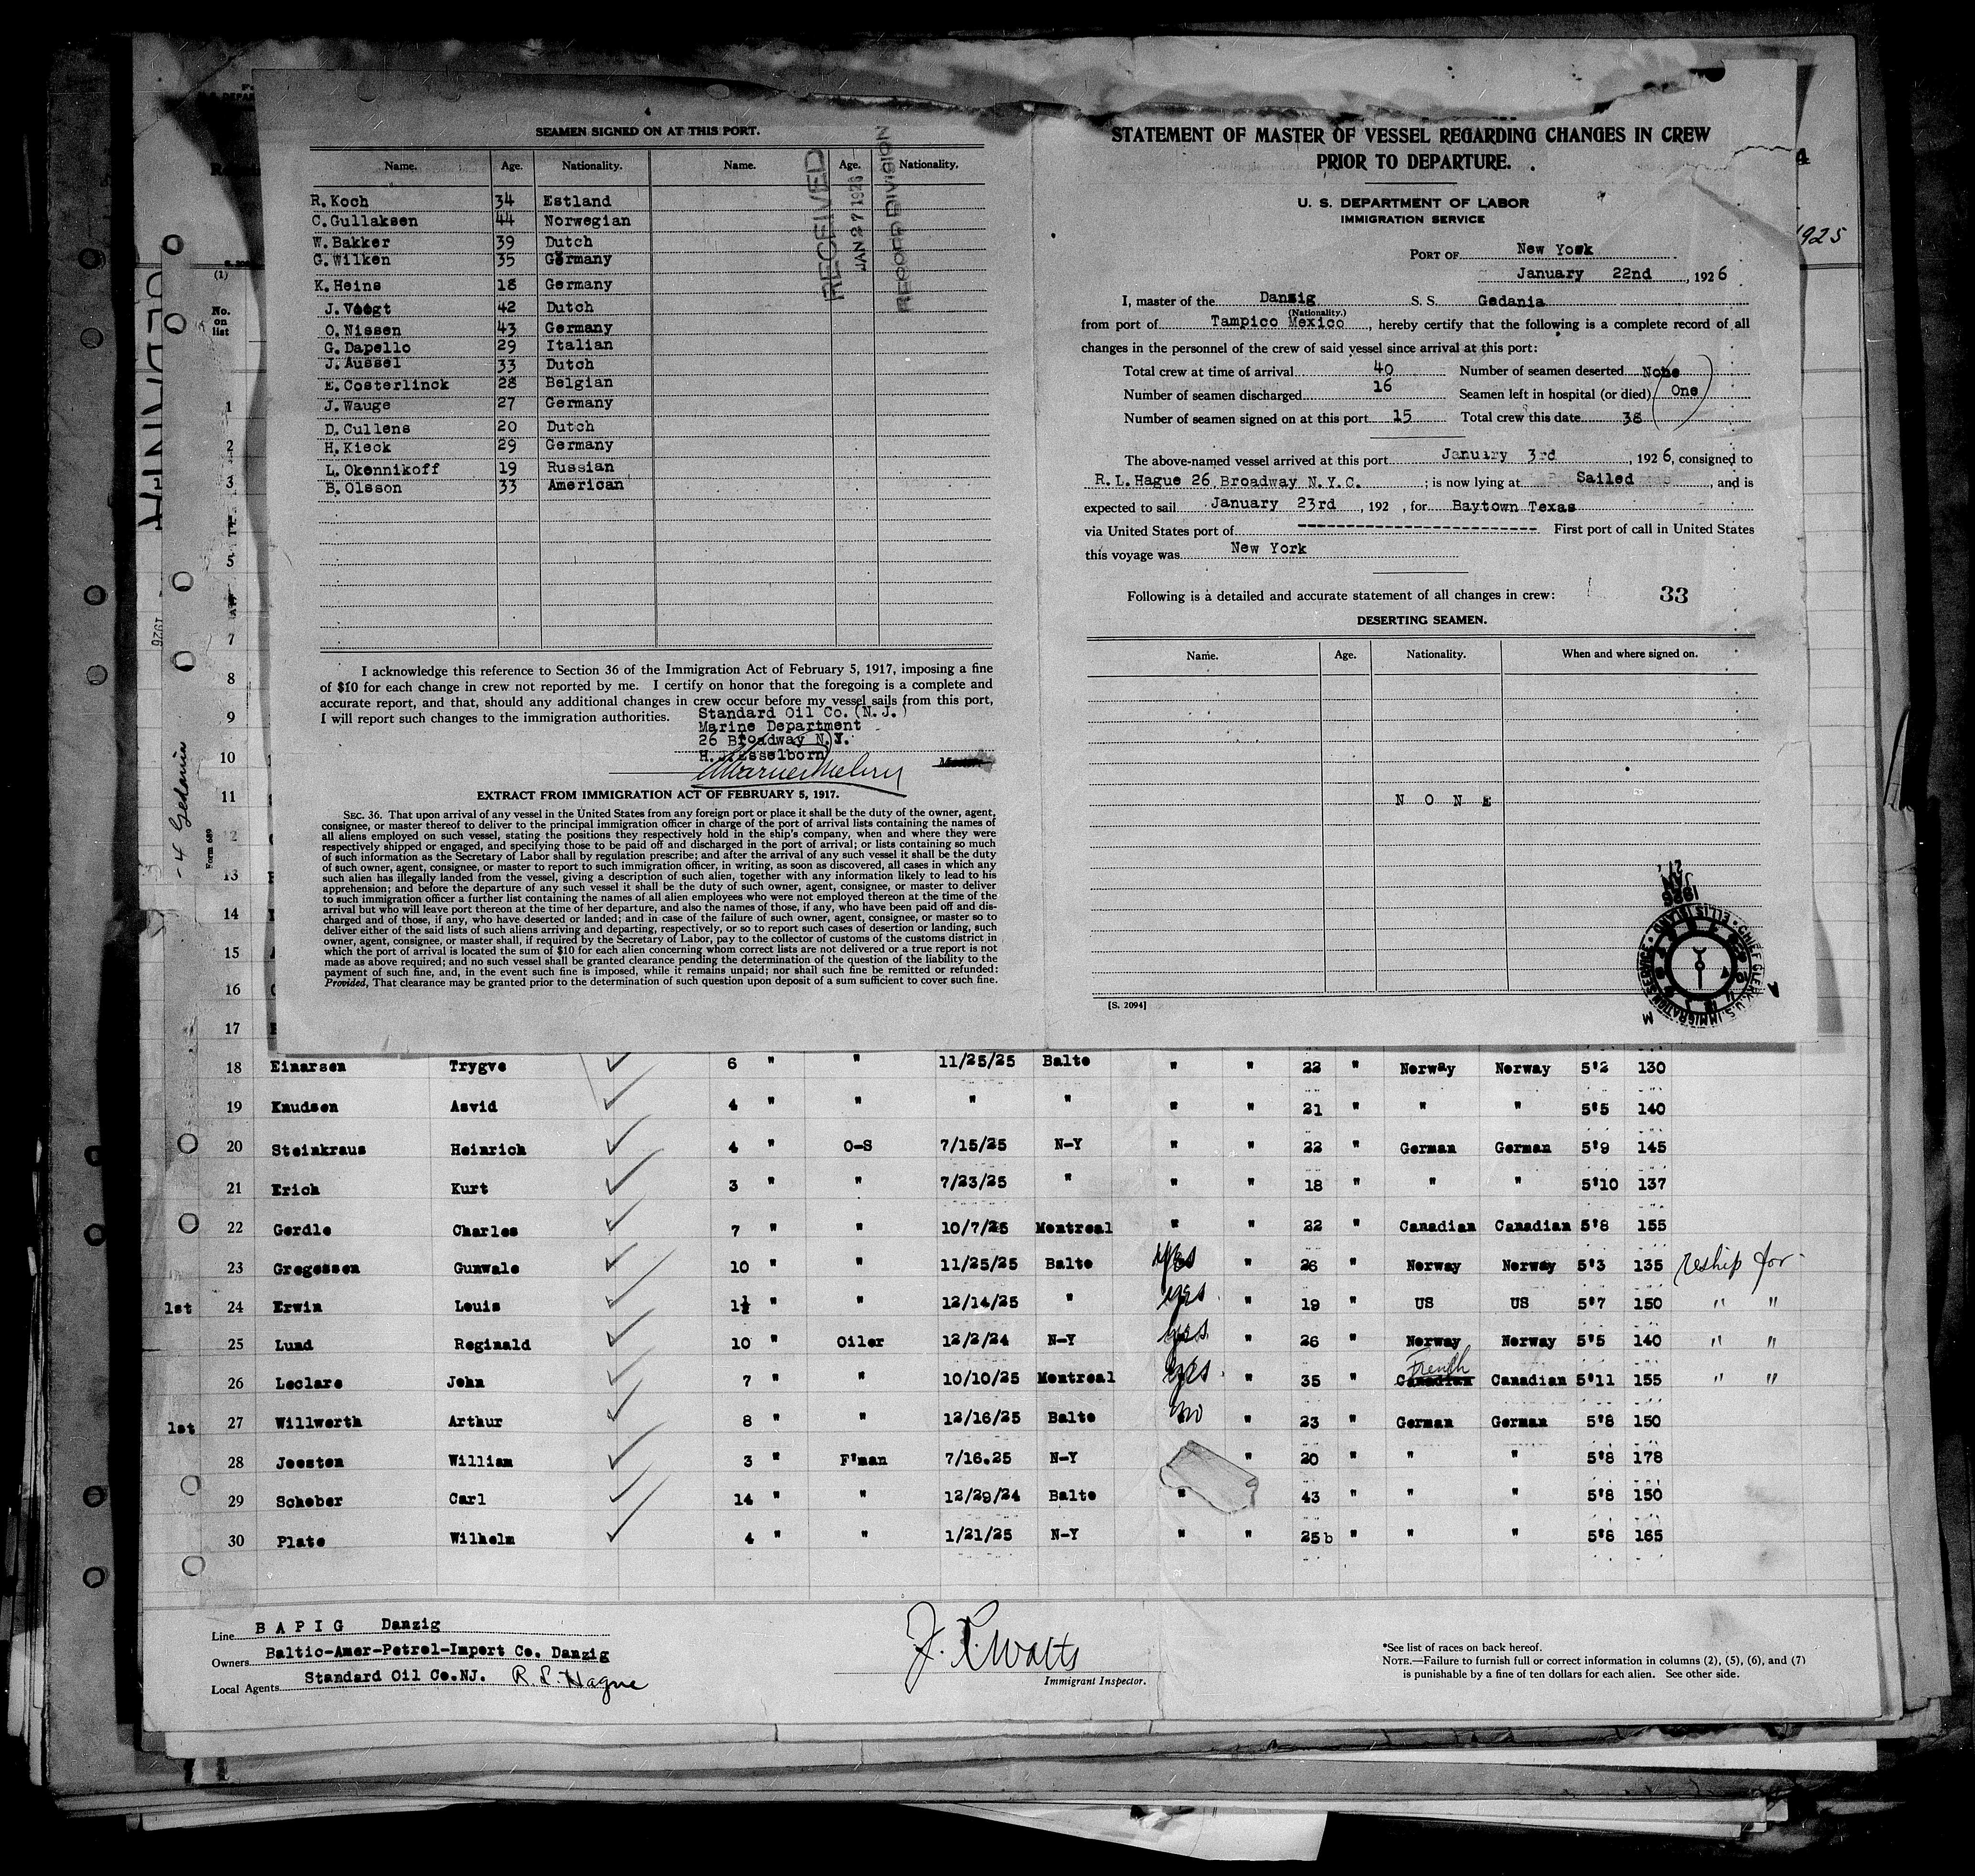 4
SEAMEN SIGNED ON AT THIS PORT.
Name. Age. Nationality. Name. Age. Nationality.
R. Koch 34 Estland
C. Gullaksen 44 Norwegian
W. Bakker 39 Dutch
G. Wilken 35 Germany
K. Heins 18 Germany
J. Voogt 42 Dutch
O. Nissen 43 Germany
G. Dapello 29 Italian
J. Aussel 33 Dutch
E. Costerlinck 28 Belgian
J. Wauge 27 Germany
D. Cullens 20 Dutch
H. Kieck 29 Germany
L. Okennikoff 19 Russian
B. Olsson 33 American
RECEIVED
JAN 27 1926
RECORD DIVISION
I acknowledge this reference to Section 36 of the Immigration Act of February 5, 1917, imposing a fine
of $10 for each change in crew not reported by me. I certify on honor that the foregoing is a complete and
accurate report, and that, should any additional changes in crew occur before my vessel sails from this port,
I will report such changes to the immigration authorities.
Standard Oil Co. (N.J.)
Marine Department
26 Broadway N.Y.
H.J. Esselborn
EXTRACT FROM IMMIGRATION ACT OF FEBRUARY 5, 1917.
SEC. 36. That upon arrival of any vessel in the United States from any foreign port or place it shall be the duty of the owner, agent,
consignee, or master thereof to deliver to the principal immigration officer in charge of the port of arrival lists containing the names of
all aliens employed on such vessel, stating the positions they respectively hold in the ship's company, when and where they were
respectively shipped or engaged, and specifying those to be paid off and discharged in the port of arrival; or lists containing so much
of such information as the Secretary of Labor shall by regulation prescribe; and after the arrival of any such vessel it shall be the duty
of such owner, agent, consignee, or master to report to such immigration officer, in writing, as soon as discovered, all cases in which any
such alien has illegally landed from the vessel, giving a description of such alien, together with any information likely to lead to his
apprehension; and before the departure of any such vessel it shall be the duty of such owner, agent, consignee, or master to deliver
to such immigration officer a further list containing the names of all alien employees who were not employed thereon at the time of the
arrival but who will leave port thereon at the time of her departure, and also the names of those, if any, who have been paid off and dis-
charged and of those, if any, who have deserted or landed; and in case of the failure of such owner, agent, consignee, or master so to
deliver either of the said lists of such aliens arriving and departing, respectively, or so to report such cases of desertion or landing, such
owner, agent, consignee, or master shall, if required by the Secretary of Labor, pay to the collector of customs of the customs district in
which the port of arrival is located the sum of $10 for each alien concerning whom correct lists are not delivered or a true report is not
made as above required; and no such vessel shall be granted clearance pending the determination of the question of the liability to the
payment of such fine, and, in the event such fine is imposed, while it remains unpaid; nor shall such fine be remitted or refunded:
Provided, That clearance may be granted prior to the determination of such question upon deposit of a sum sufficient to cover such fine.
STATEMENT OF MASTER OF VESSEL REGARDING CHANGES IN CREW
PRIOR TO DEPARTURE.
U. S. DEPARTMENT OF LABOR
IMMIGRATION SERVICE
PORT OF New York
January 22nd, 1926
I, master of the Danzig S. S. Gedania
(Nationality.)
from port of Tampico Mexico, hereby certify that the following is a complete record of all
changes in the personnel of the crew of said vessel since arrival at this port:
Total crew at time of arrival 40 Number of seamen deserted None
Number of seamen discharged 16 Seamen left in hospital (or died) One
Number of seamen signed on at this port 15 Total crew this date 38
The above-named vessel arrived at this port January 3rd, 1926, consigned to
R. L. Hague 26 Broadway N.Y.C.; is now lying at Sailed, and is
expected to sail January 23rd, 192 , for Baytown Texas
via United States port of ---------- First port of call in United States
this voyage was New York
Following is a detailed and accurate statement of all changes in crew: 33
DESERTING SEAMEN.
Name. Age. Nationality. When and where signed on.
N O N E
[S. 2094]
CHIEF CLERK, U.S. IMMIGRATION SERVICE ELLIS ISLAND
1925
(1)
No.
on
list
1
2
3
5
7
8
9
10
11
12
13
14
15
16
17
Gedania
Form 689
1926
18 Einarsen Trygve 6 " " 11/25/25 Balto " " 22 " Norway Norway 5'2 130
19 Knudsen Asvid 4 " " " " " " 21 " " " 5'5 140
20 Steinkraus Heinrich 4 " O-S 7/15/25 N-Y " " 22 " German German 5'9 145
21 Erich Kurt 3 " " 7/23/25 " " " 18 " " " 5'10 137
22 Gerdle Charles 7 " " 10/7/25 Montreal " " 22 " Canadian Canadian 5'8 155
23 Gregessen Gunwale 10 " " 11/25/25 Balto yes " 26 " Norway Norway 5'3 135 reship for
1st 24 Erwin Louis 1½ " " 12/14/25 " yes " 19 " US US 5'7 150 " "
25 Lund Reginald 10 " Oiler 12/2/24 N-Y yes " 26 " Norway Norway 5'5 140 " "
26 Leclare John 7 " " 10/10/25 Montreal yes " 35 " French Canadian Canadian 5'11 155 " "
1st 27 Willwerth Arthur 8 " " 12/16/25 Balto no " 23 " German German 5'8 150
28 Joosten William 3 " F'man 7/16.25 N-Y " 20 " " " 5'8 178
29 Schober Carl 14 " " 12/29/24 Balto " 43 " " " 5'8 150
30 Plate Wilhelm 4 " " 1/21/25 N-Y " " 25b " " " 5'8 165
Line BAPIG Danzig
Owners Baltic-Amer-Petrol-Import Co. Danzig
Local Agents Standard Oil Co.NJ. R. L. Hague
J. R. Watts
Immigrant Inspector.
*See list of races on back hereof.
NOTE.—Failure to furnish full or correct information in columns (2), (5), (6), and (7)
is punishable by a fine of ten dollars for each alien. See other side.